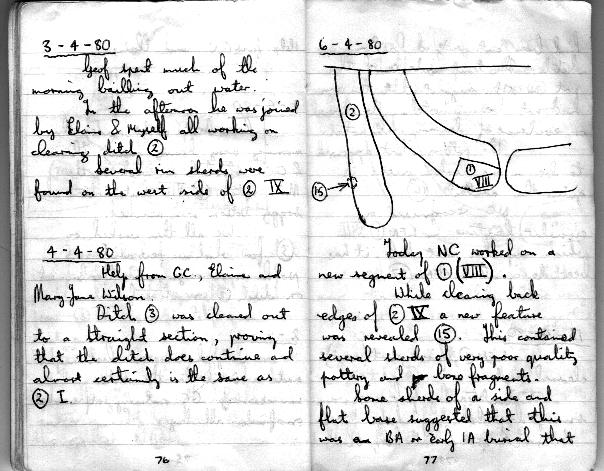 3-4-80
Geof spent much of the
morning bailing out water.
In the afternoon he was joined
by Elaine & Myself all working on
clearing ditch ②
Several rim sherds were
found on the west side of ② IX
4-4-80
Help from GC, Elaine and
Mary Jane Wilson.
Ditch ③ was cleared out
to a straight section, proving
that the ditch does continue and
almost certainly is the same as
② I.
76
6-4-80
②
①
VIII
⑮
Today NC worked on a
new segment of ① (VIII).
While cleaning back
edges of ② IX a new feature
was revealed ⑮. This contained
several sherds of very poor quality
pottery and bone fragments.
Some sherds of a side and
flat base suggested that this
was an BA or early IA burial that
77